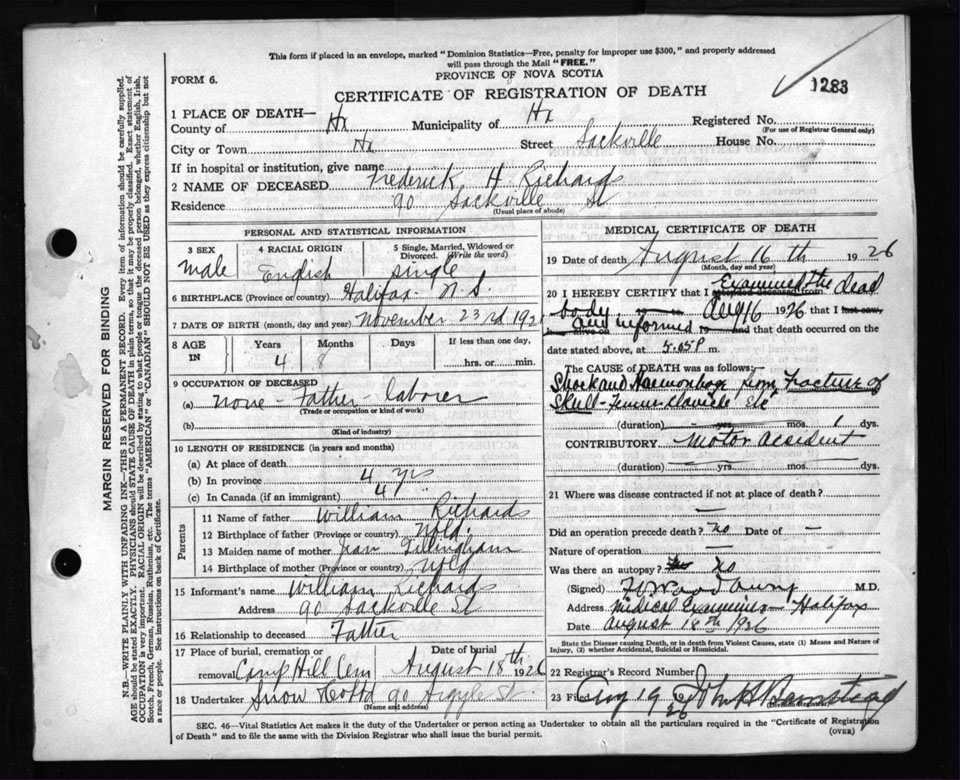 This form if placed in an envelope, marked "Dominion Statistics—Free, penalty for improper use $300," and properly addressed
will pass through the Mail "FREE."
PROVINCE OF NOVA SCOTIA
FORM 6.
1283
CERTIFICATE OF REGISTRATION OF DEATH
1 PLACE OF DEATH—
County of Hx Municipality of Hx Registered No.
(For use of Registrar General only)
City or Town Hx Street Sackville House No.
If in hospital or institution, give name
2 NAME OF DECEASED Frederick H Richards
Residence 90 Sackville St
(Usual place of abode)
PERSONAL AND STATISTICAL INFORMATION
3 SEX Male
4 RACIAL ORIGIN English
5 Single, Married, Widowed or Divorced. (Write the word) single
6 BIRTHPLACE (Province or country) Halifax N.S.
7 DATE OF BIRTH (month, day and year) November 23rd 1921
8 AGE IN Years 4 Months 8 Days If less than one day, hrs. or min.
9 OCCUPATION OF DECEASED
(a) None - Father - laborer
(Trade or occupation or kind of work)
(b)
(Kind of industry)
10 LENGTH OF RESIDENCE (in years and months)
(a) At place of death
(b) In province 4 yrs
(c) In Canada (if an immigrant) 4
Parents
11 Name of father William Richards
12 Birthplace of father (Province or country) Nfld.
13 Maiden name of mother Jean Fillingham
14 Birthplace of mother (Province or country) Nfld
15 Informant's name William Richards
Address 90 Sackville St
16 Relationship to deceased Father
17 Place of burial, cremation or removal Camp Hill Cem Date of burial August 18th 1926
18 Undertaker Snow & Co Ltd 90 Argyle St.
(Name and address)
MEDICAL CERTIFICATE OF DEATH
19 Date of death August 16th 1926
(Month, day and year)
20 I HEREBY CERTIFY that I Examined the dead
body Aug 16 1926 that I last saw
and informed that death occurred on the
date stated above, at 5.05 P m.
The CAUSE of DEATH was as follows:
Shock and Haemorrhage from Fracture of
Skull - Femur clavicle etc
(duration) yrs. mos. 1 dys.
CONTRIBUTORY Motor accident
(duration) yrs. mos. dys.
21 Where was disease contracted if not at place of death?
—
Did an operation precede death? No Date of —
Nature of operation —
Was there an autopsy? No
(Signed) M.D.
Address Medical Examiner - Halifax
Date August 18th 1926
State the Disease Causing Death, or in death from Violent Causes, state (1) Means and Nature of
Injury, (2) whether Accidental, Suicidal or Homicidal.
22 Registrar's Record Number
23 Filed Aug 19 26 John H Barnstead
SEC. 46—Vital Statistics Act makes it the duty of the Undertaker or person acting as Undertaker to obtain all the particulars required in the "Certificate of Registration
of Death" and to file the same with the Division Registrar who shall issue the burial permit.
(OVER)
MARGIN RESERVED FOR BINDING
N.B.—WRITE PLAINLY WITH UNFADING INK—THIS IS A PERMANENT RECORD. Every item of information should be carefully supplied.
AGE should be stated EXACTLY. PHYSICIANS should STATE CAUSE OF DEATH in plain terms, so that it may be properly classified. Exact statement of
OCCUPATION is very important. RACIAL ORIGIN will be described by stating to what people or tongue the deceased person belonged, whether English, Irish,
Scotch, French, German, Russian, Ruthenian, etc. The terms "AMERICAN" or "CANADIAN" SHOULD NOT BE USED as they express citizenship but not
a race or people. See instructions on back of Certificate.